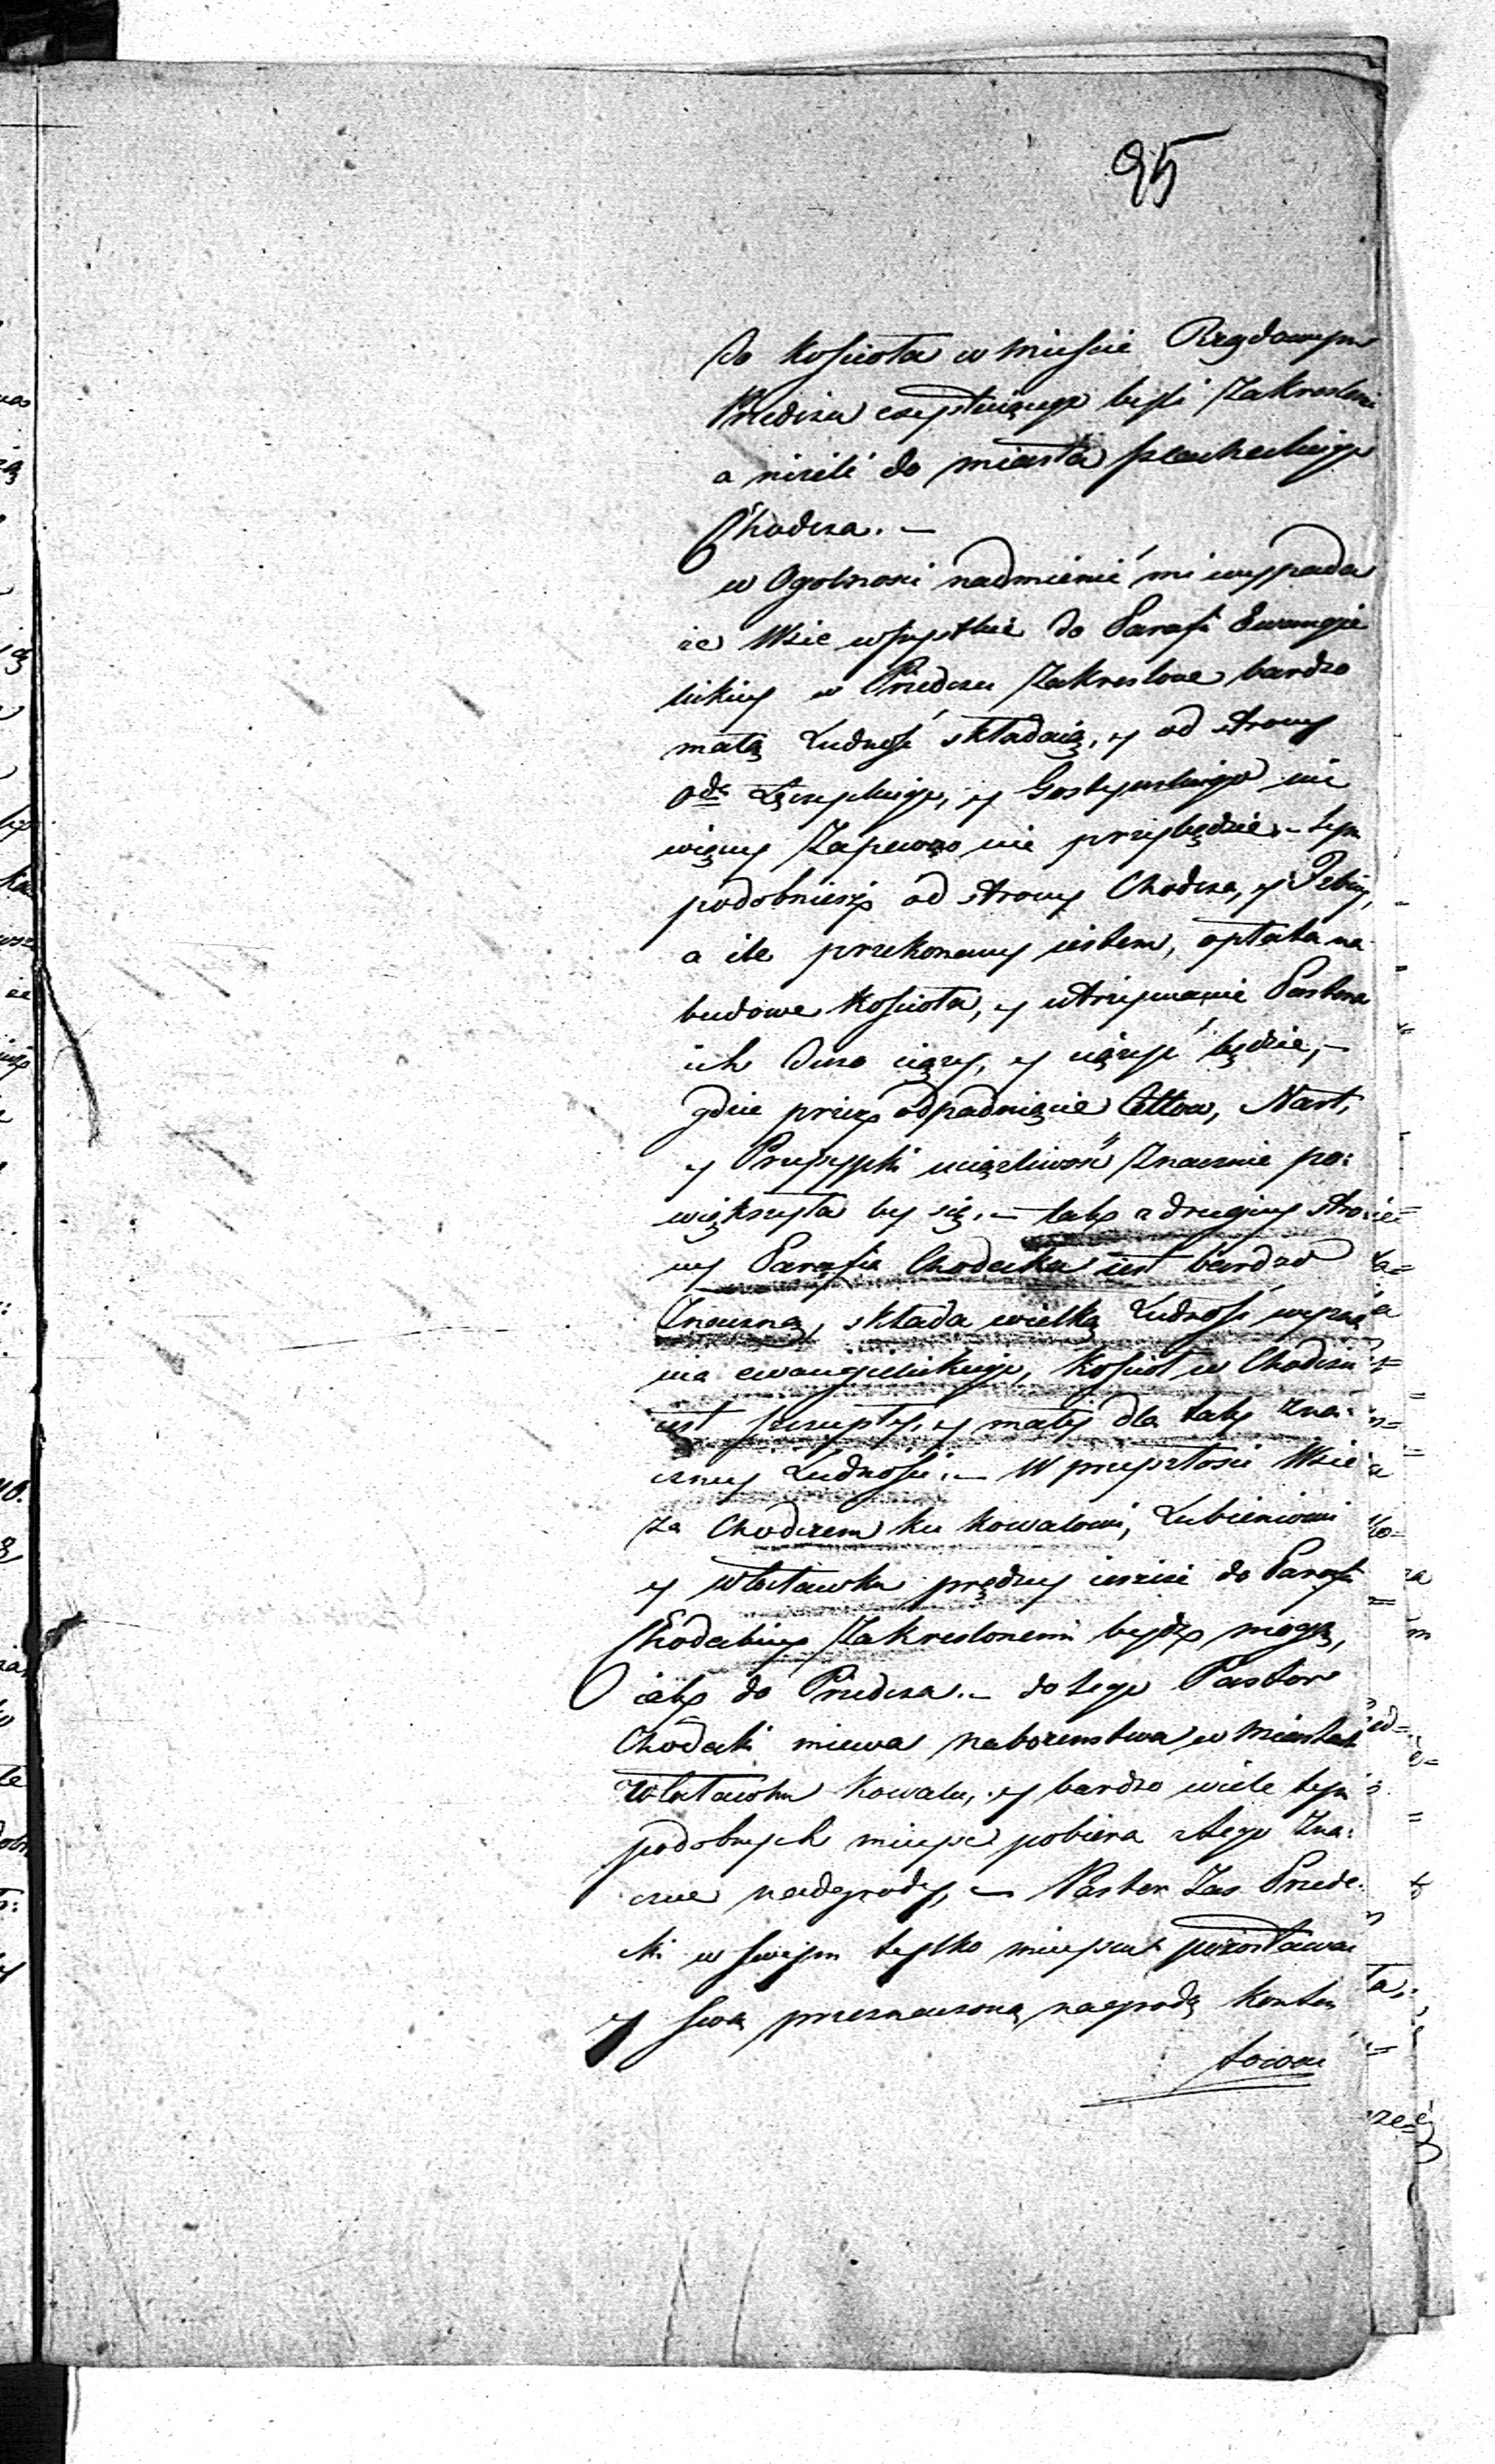 95
do Kościoła w mieście Rządowym
Przedczu exystuiącego byli Zakresleni
a niżeli do miasta szlacheckiego
Chodcza. –
w Ogolnosci nadmienić mi wypada
że Wsie wszystkie do Parafi Ewangie
lickiey w Przedczu Zakreslone bardzo
małą Ludność składaią, y od strony
Łęczyckiego, y Gostyńskiego nie
więcey Zapewno nie przybędzie – tym
podobnież od strony Chodcza, y
a ile przekonany iestem, opłata na
budowe Kościoła, y utrzymanie Pastora
ich duzo ciąży, y ciążyć będzie, –
gdzie przez odpadnięcie Nart,
y Przyzypki uciążliwość Znacznie po:
większyła by się. – tak z drugiey stro
ny Parafia Chodecka iest bardzo
Znaczną, składa wielką Ludność wyzna
nia ewangelickiego, Kościoł w Chodczu
iest szczupły, y mały dla tak zna:
czney Ludności. – W przyszłosci Wsie
za Chodczem ku Kowalowi, Lubieniowi
y Włocławku prędzey ieszcze do Parafi
Chodeckiey Zakreslonemi bydź mogą,
iak do Przedcza. – do tego Pastor
Chodecki miewa nabożenstwa w Miastach
Włocławku Kowalu, y bardzo wiele tym
podobnych mieysc pobiera z tego Zna:
czne nadgrody, – Pastor Zas Przede:
cki w swoym tylko mieyscu pozostawać
y swą przeznaczoną nagrodą konten
tować